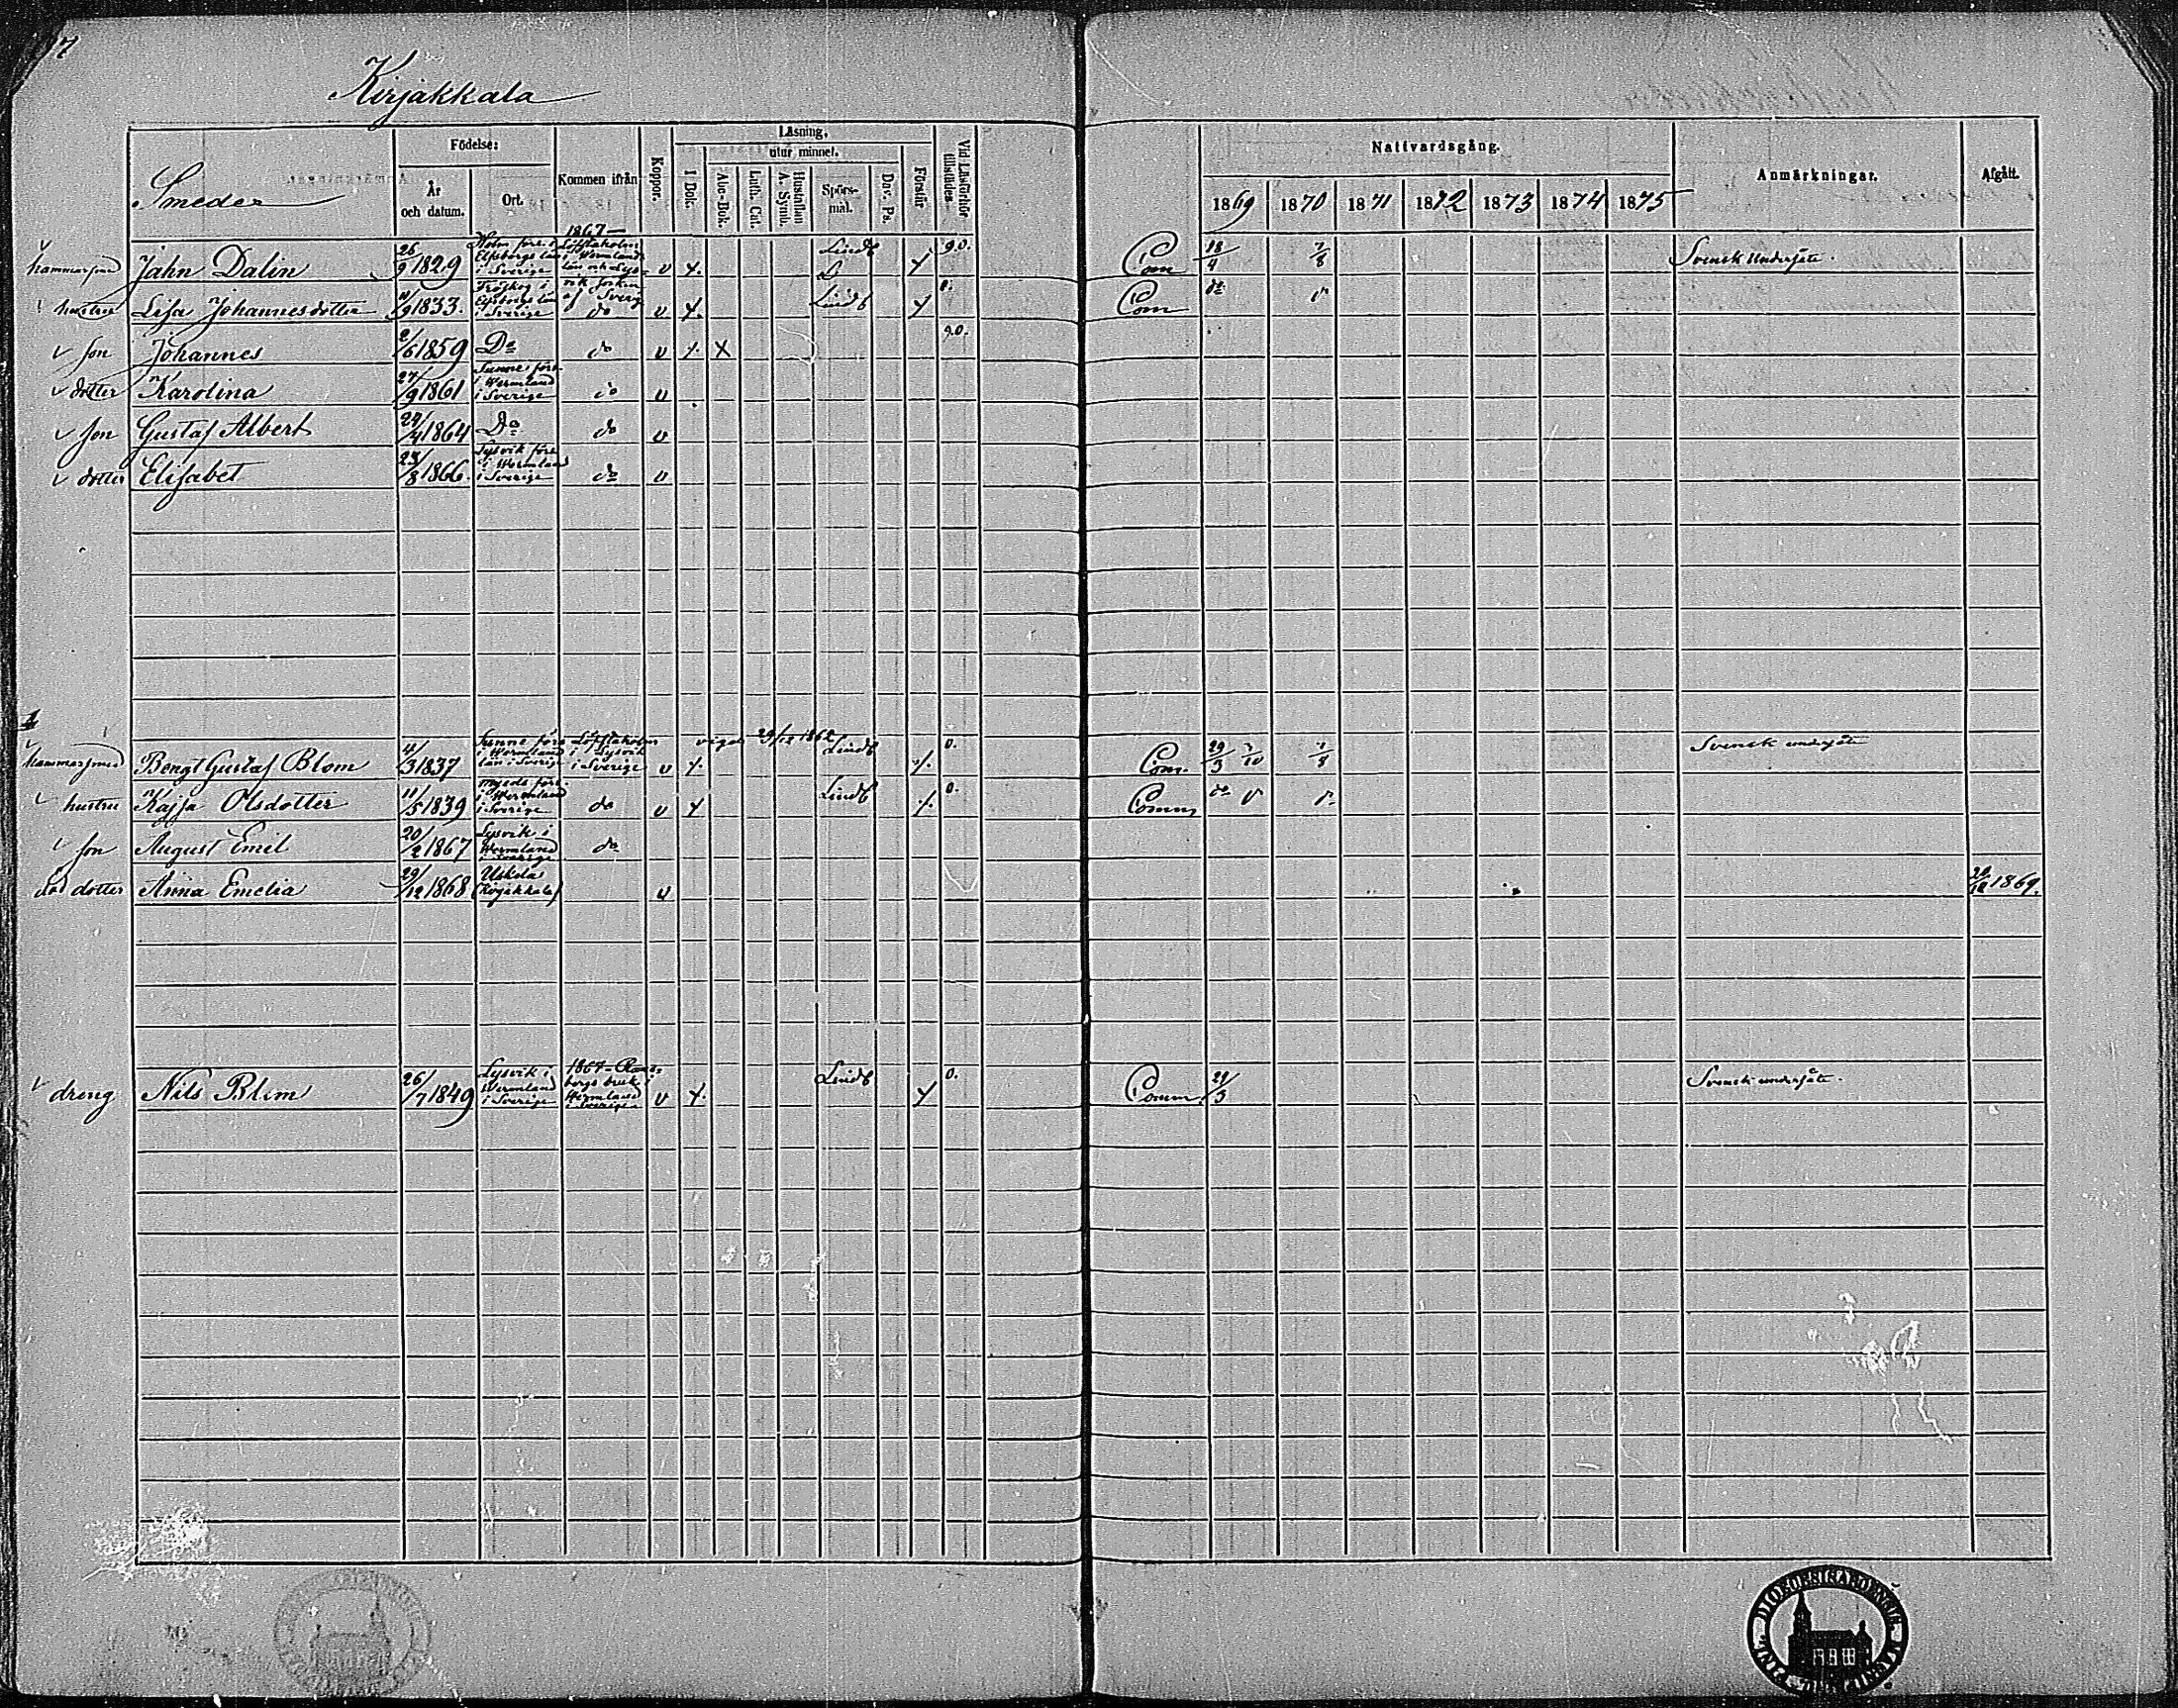 Kirjakkala
Smeder
Födelse:
År och datum.
Ort.
Kommen ifrån
Koppor.
Läsning.
I Bok.
utur minnet.
Abc-Bok.
Luth. Cat.
Hustaflan A. Symb.
Spörsmål.
Dav. Ps.
Förstår
Vid Läsförhör tillstädes
Nattvardsgång.
1869 1870 1871 1872 1873 1874 1875
Anmärkningar.
Afgått.
1867
hammarsmed Jahn Dalin 26/9 1829 Holm förs. i Elfsborgs län i Sverige Löfstaholm i Wermlands län och Lysvik socken af Sverg v Lindb 9.0. Com 18/4 7/8 Svensk Undersåte.
hustru Lisa Johannesdotter 11/9 1833. Fröskog i Elfsborgs län i Sverige do v Lindb 0. Com do
v son Johannes 2/6 1859 Do do v X 9.0.
v dotter Karolina 27/9 1861 Sunne förs. i Wermland i Sverige do v
v son Gustaf Albert 24/4 1864 Do do v
v dotter Elisabet 23/8 1866. Lysvik förs i Wermland i Sverige do v
vigde 29/12 1862
hammarsmed Bengt Gustaf Blom 4/3 1837 Sunne förs i Wermland län i Sverig Löfstaholm i Lysvik i Sverige v Lindb 0. Com. 29/3 7/10 7/8 Svensk undersåte
v hustru Kajsa Olsdotter 11/5 1839 förs. i Wermland i Sverige do v Lindb 0. Comm do
v son August Emil 20/2 1867 Lysvik i Wermland i Sverige do
död dotter Anna Emelia 29/12 1868 Uskela (Kirjakkala) v 1869.
v dreng Nils Blim 26/7 1849 Lysvik i Wermland i Sverige 1867 bruk i Wermland i Sverige v Lindb 0. Comm. 29/3 Svensk undersåte.